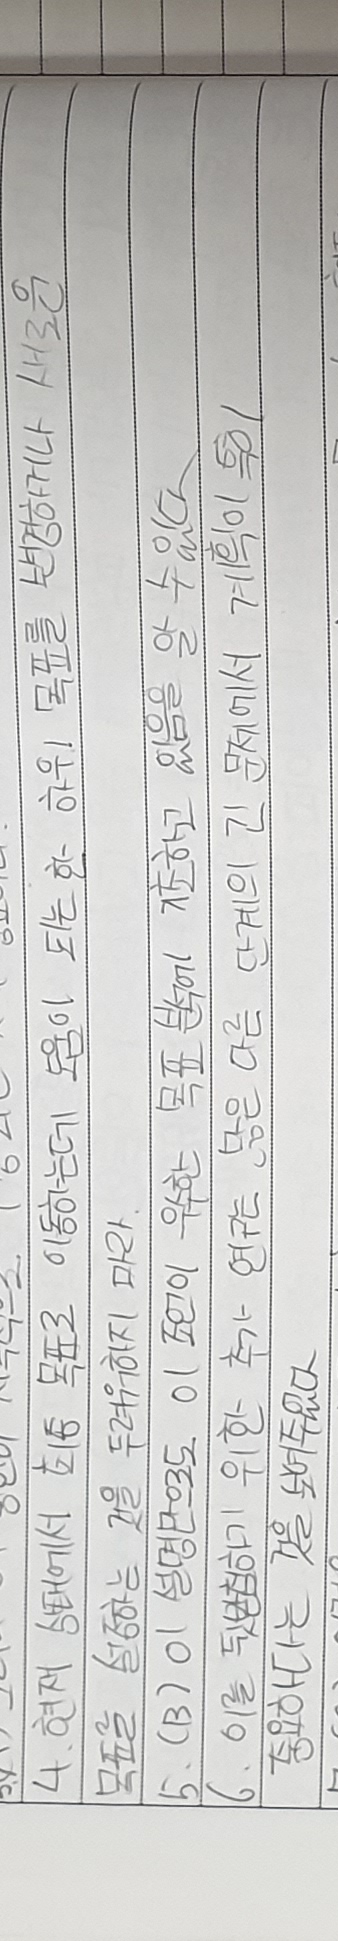 4. 현재 상태에서 최종 목표로 이동하는데 도움이 되는 한 하위 목표를 변경하거나 새로운
목표를 설정하는 것을 두려워하지 마라.
5. (B) 이 설명만으로도 이 조언이 우수한 목표 분석에 기초하고 있음을 알 수 있다
6. 이를 뒷받침하기 위한 추가 연구는 많은 다른 단계의 긴 문제에서 계획이 특히
중요하다는 것을 보여주었다